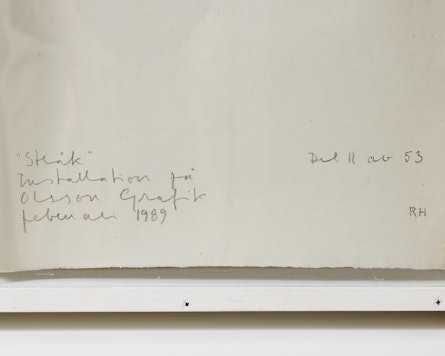 "Stråk"
Del 11 av 53
Installation på
Olsson Grafik
februari 1989
RH